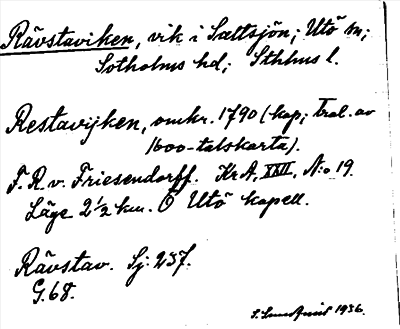 Rävstaviken, vik i Saltsjön; Utö sn;
Sotholms hd; Sthlms l.
Restavijken, omkr. 1790 (kop; trol. av
1600-talskarta).
F. R. v. Friesendorff. KrA, XXII, N:o 19.
Läge 2½ km. Ö Utö kapell.
Rävstav. Sj: 237.
G. 68.
1936.